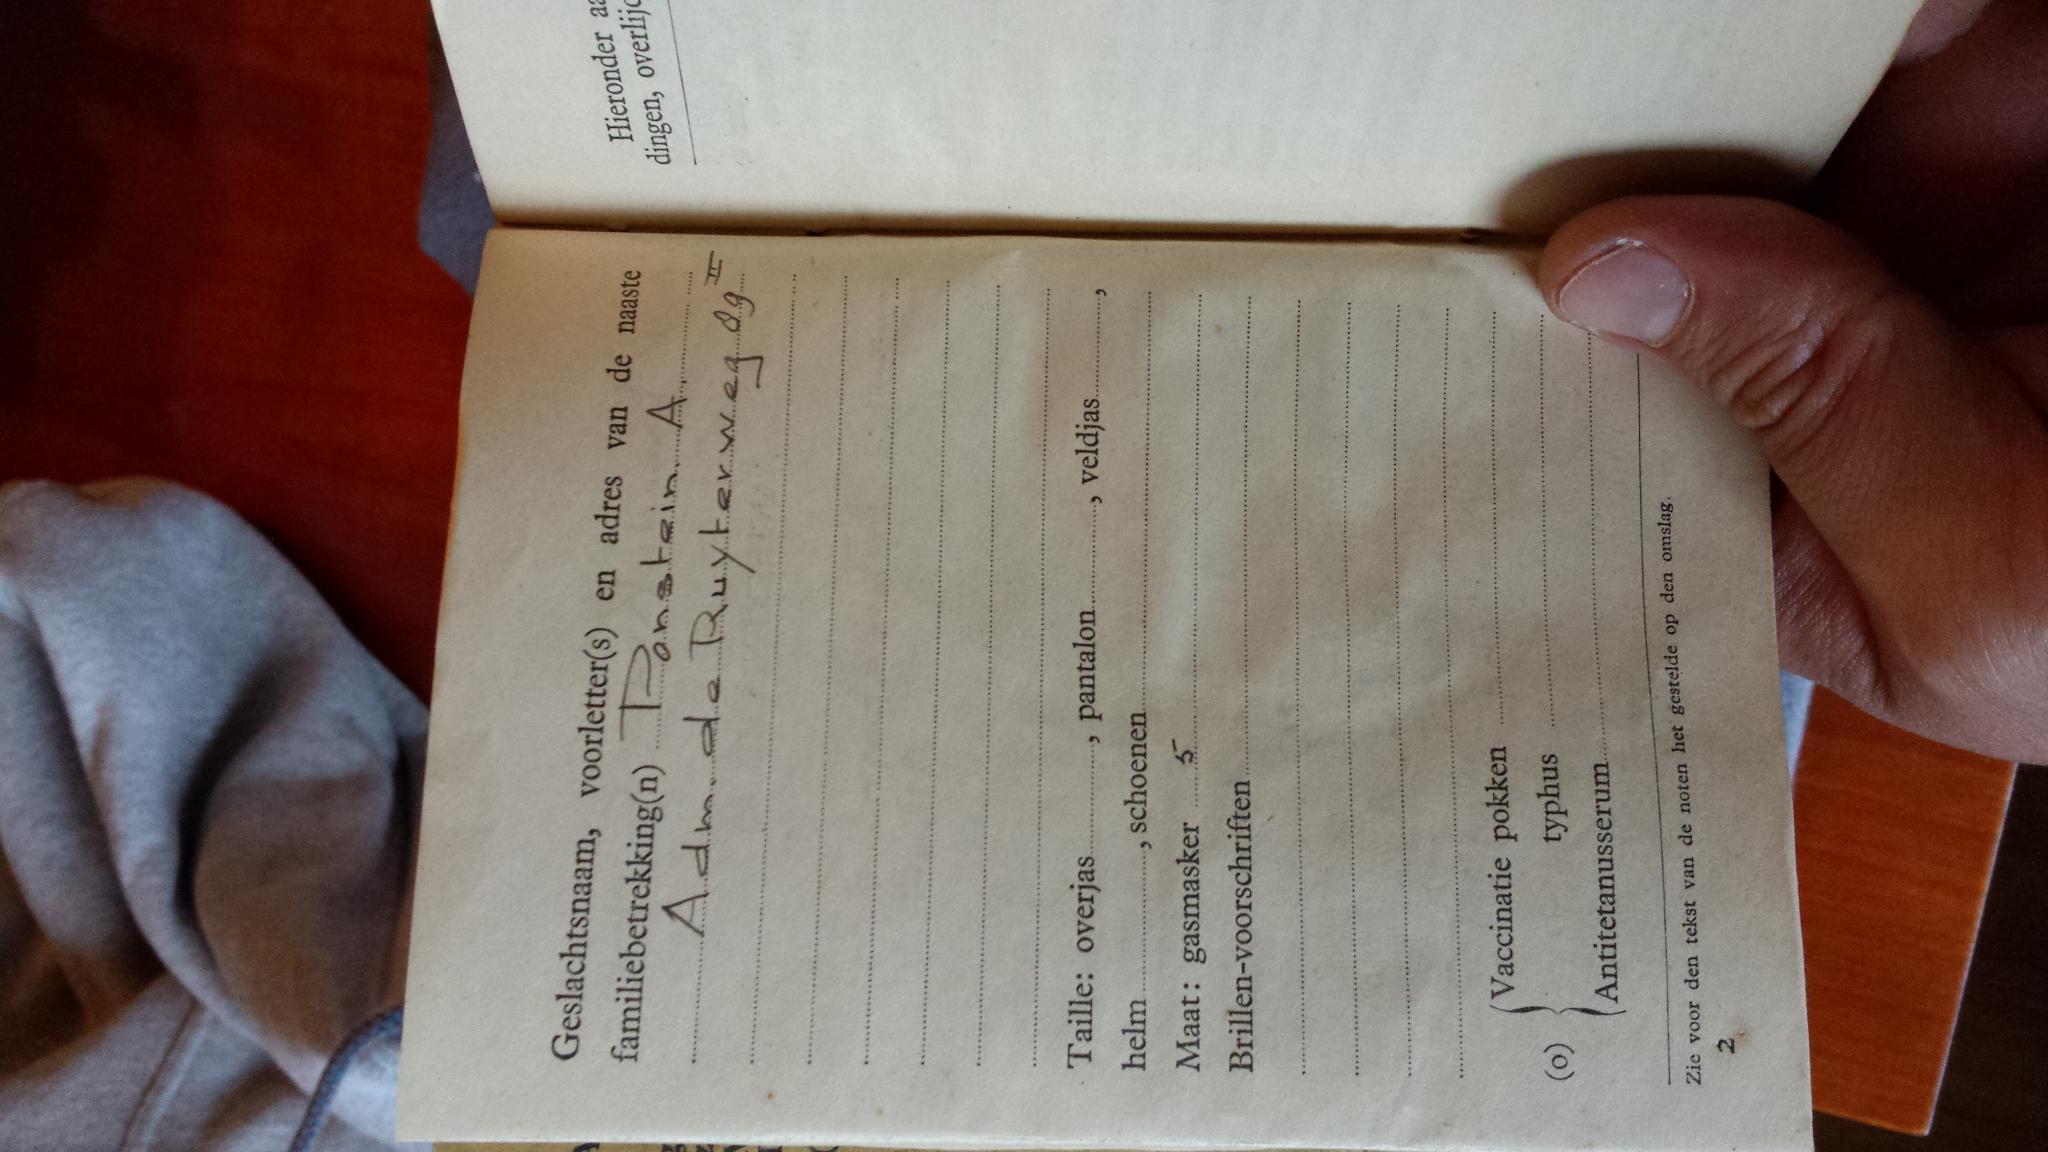 Geslachtsnaam, voorletter(s) en adres van de naaste
familiebetrekking(n) Panstein A.
Adm. de Ruyterweg II
Taille: overjas, pantalon, veldjas,
helm, schoenen
Maat: gasmasker 5
Brillen-voorschriften
(o) { Vaccinatie pokken
typhus
Antitetanusserum
Zie voor den tekst van de noten het gestelde op den omslag.
2
Hieronder
dingen,